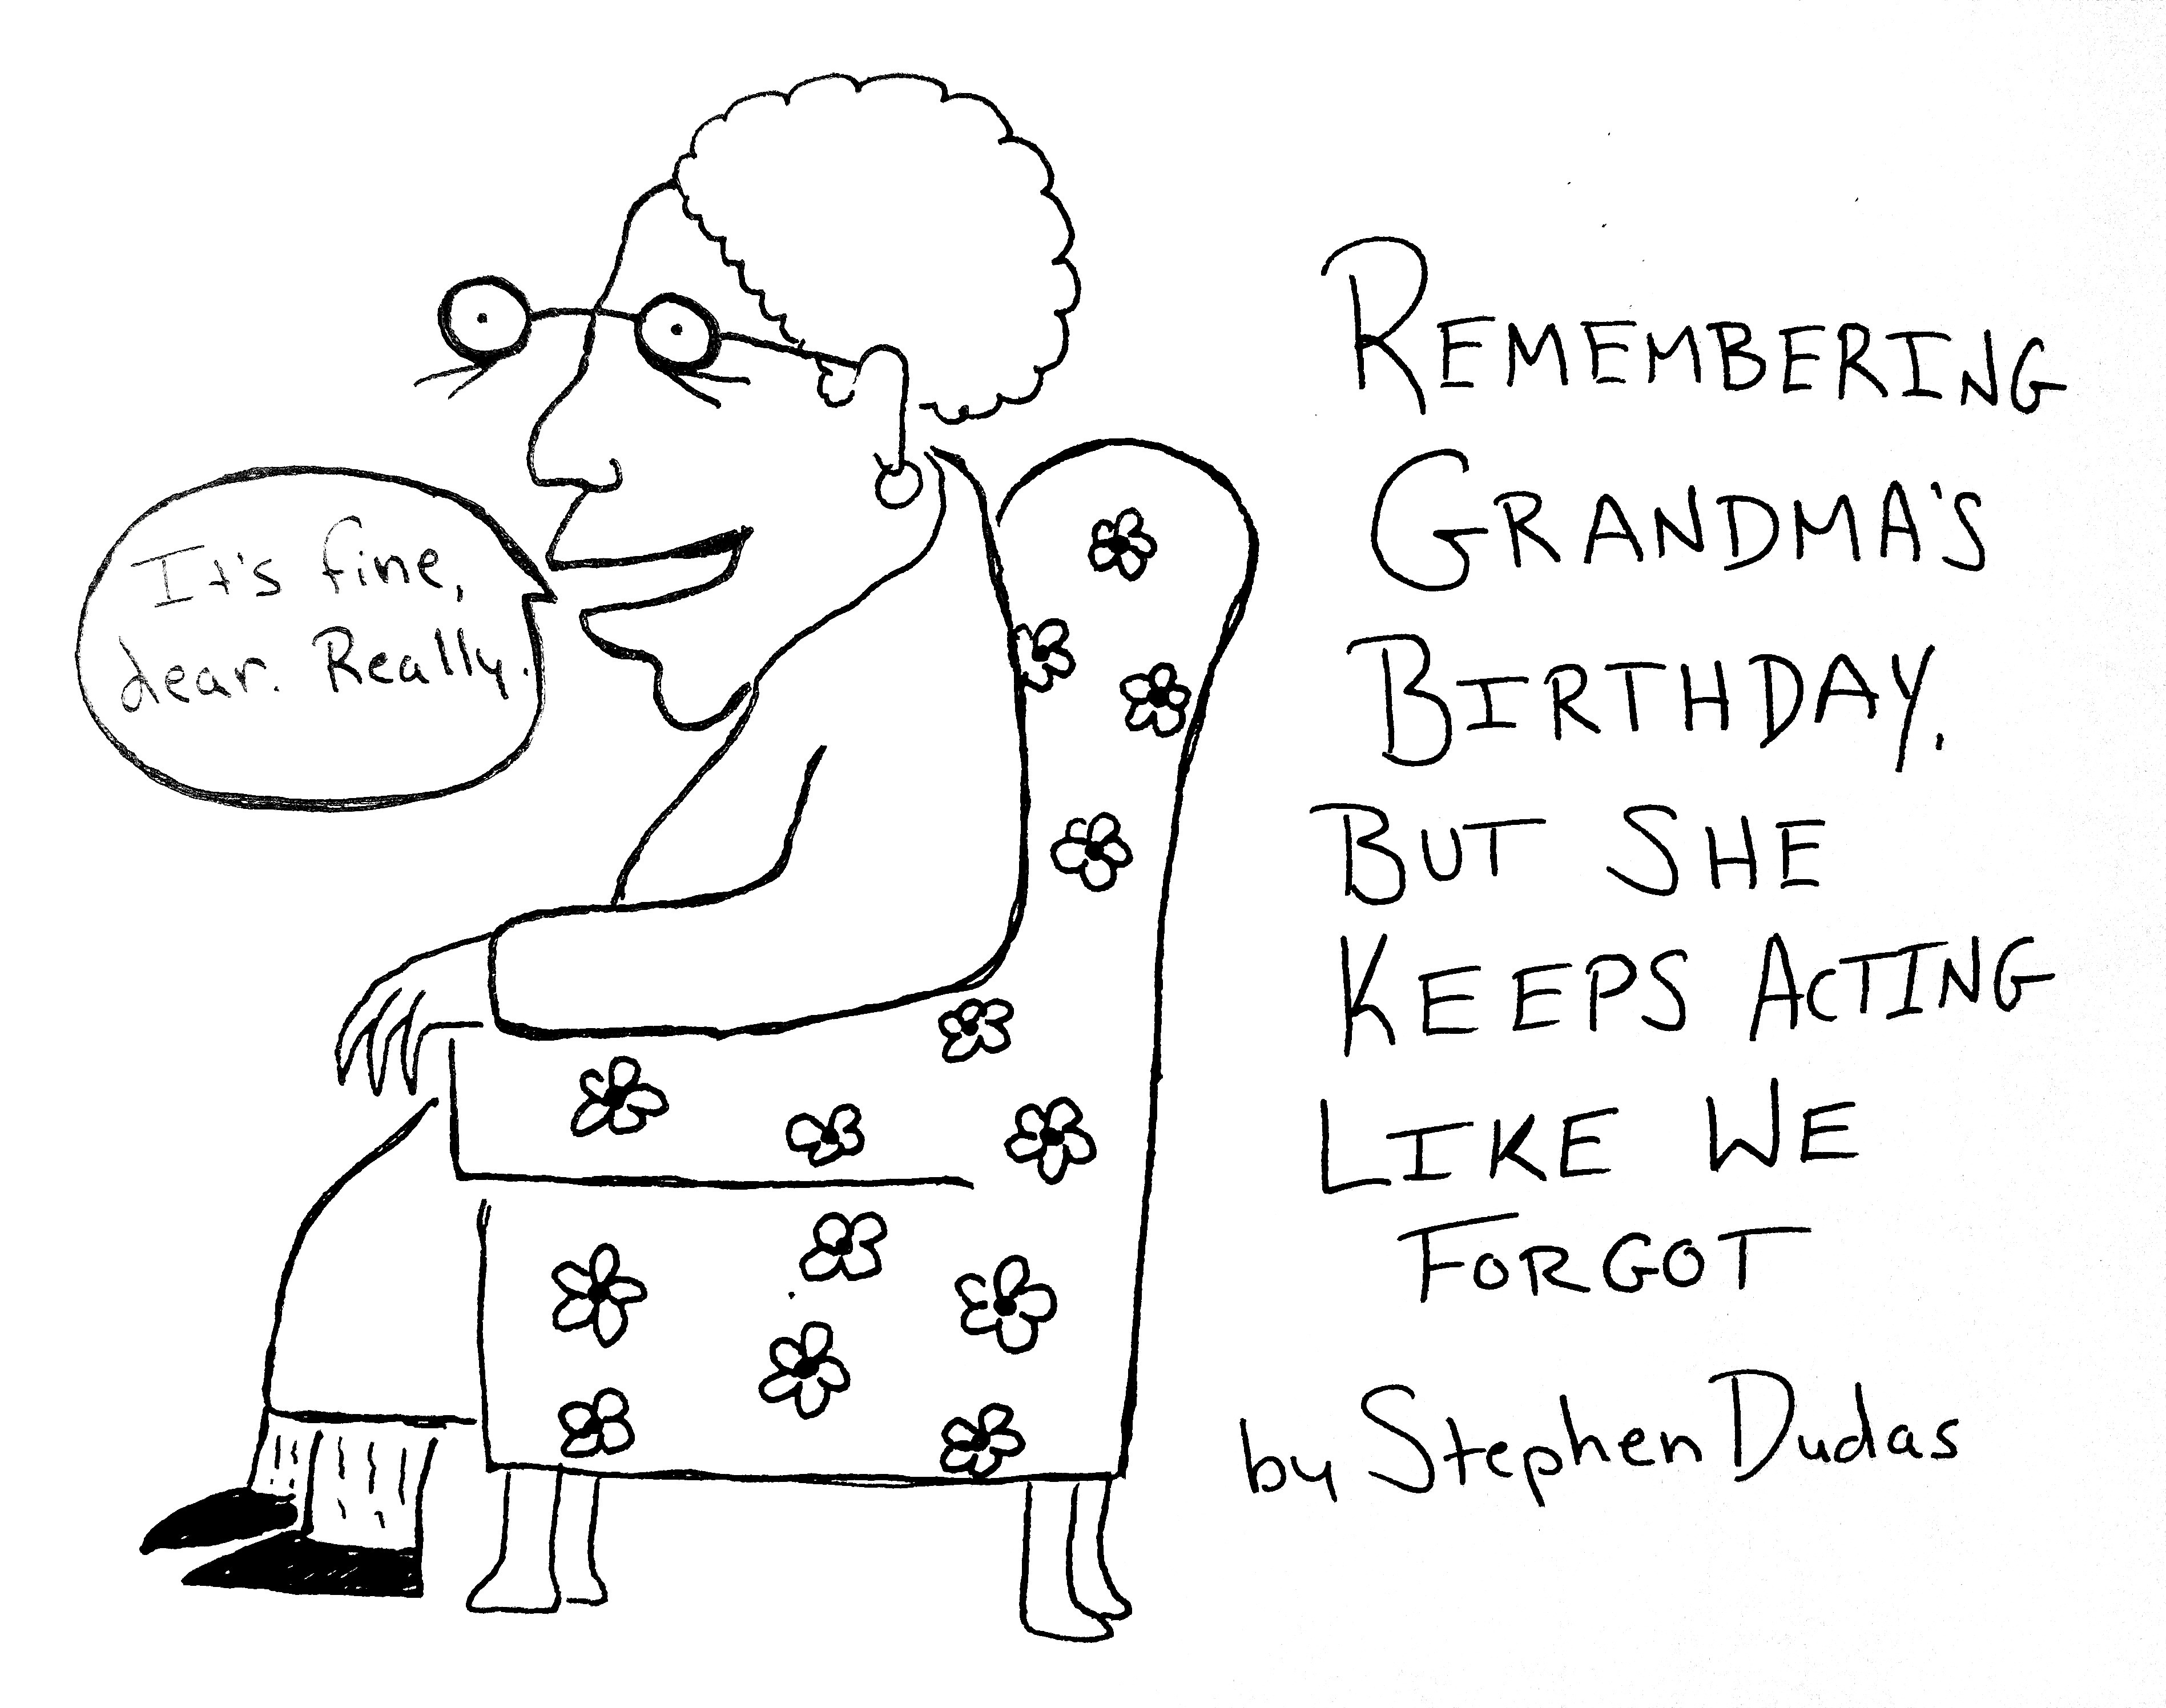 It's fine,
dear. Really.
REMEMBERING
GRANDMA'S
BIRTHDAY.
BUT SHE
KEEPS ACTING
LIKE WE
FORGOT
by Stephen Dudas